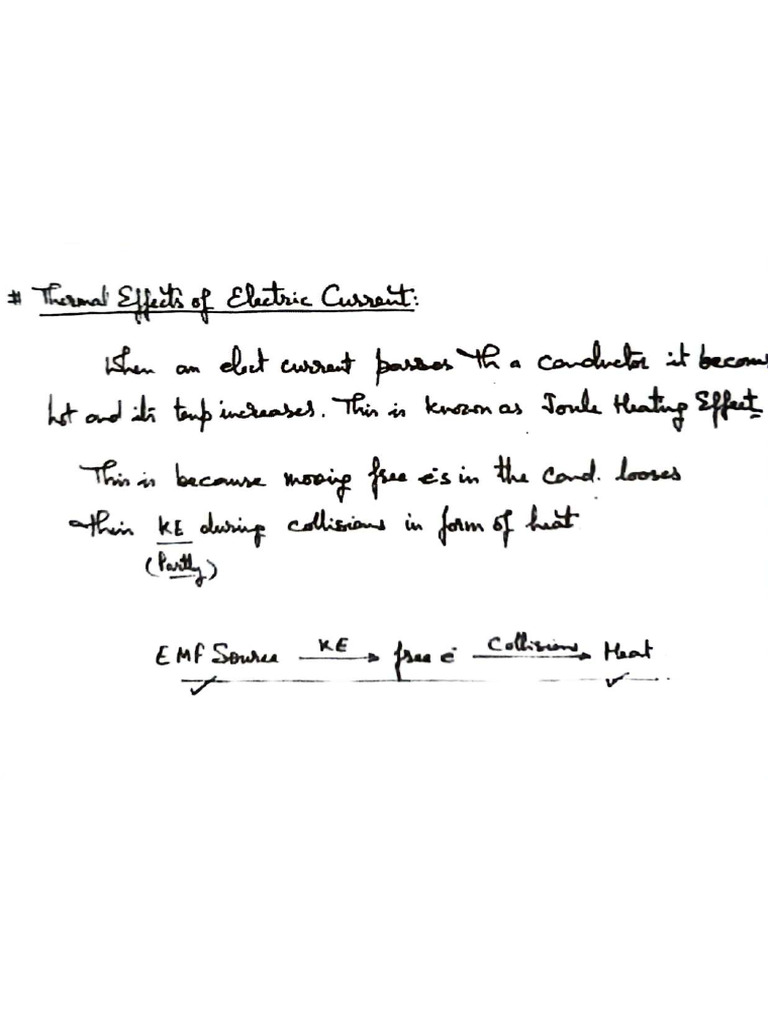 # Thermal Effects of Electric Current:
When an elect current passes th a conductor it becom
hot and its temp increases. This is known as Joule Heating Effect.
This is because moving free e⁻s in the cond. looses
their KE during collisions in form of heat
(Partly)
EMF Source —KE→ free e⁻ —Collisions→ Heat